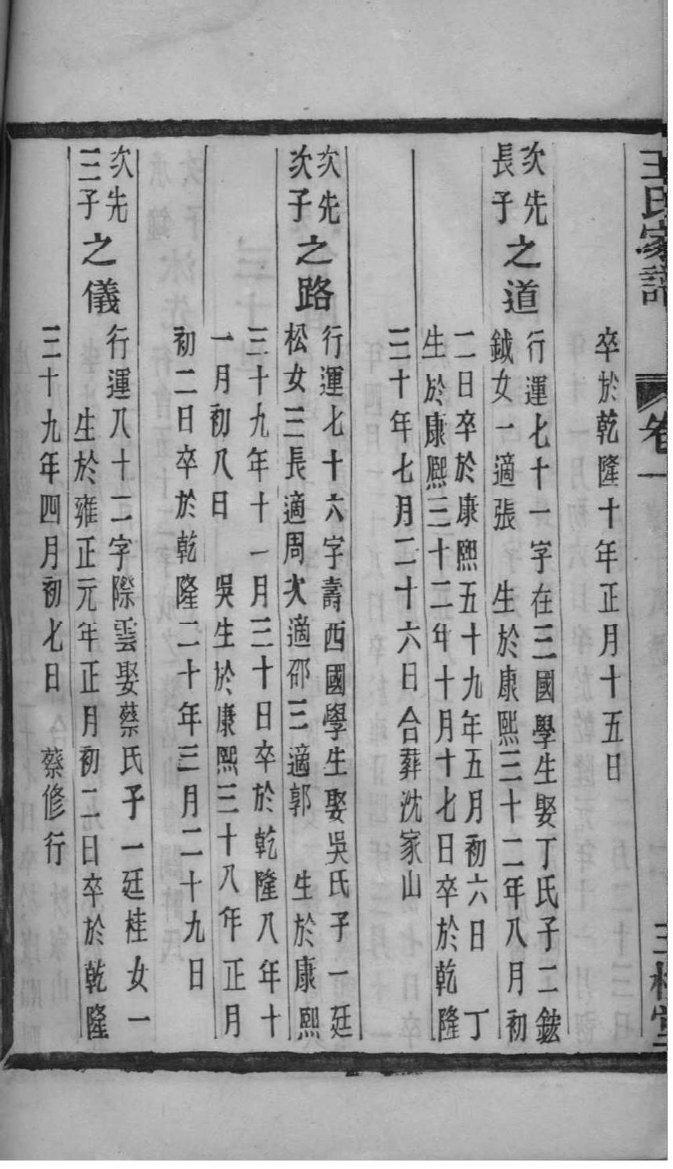 王氏家譜 卷一 三槐堂
卒於乾隆十年正月十五日
次先
長子
之道
行運七十一字在三國學生娶丁氏子二鋐
鉞女一適張 生於康熙三十二年八月初
二日卒於康熙五十九年五月初六日 丁
生於康熙三十二年十月十七日卒於乾隆
三十年七月二十六日合葬沈家山
次先
次子
之路
行運七十六字壽西國學生娶吳氏子一廷
松女三長適周次適邵三適郭 生於康熙
三十九年十一月三十日卒於乾隆八年十
一月初八日 吳生於康熙三十八年正月
初二日卒於乾隆二十年三月二十九日
次先
三子
之儀
行運八十二字際雲娶蔡氏子一廷桂女一
生於雍正元年正月初二日卒於乾隆
三十九年四月初七日 蔡修行